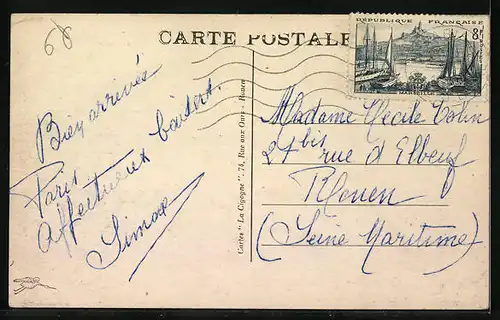 68
CARTE POSTALE
RÉPUBLIQUE FRANÇAISE
8F
MARSEILLE
Bien arrivés
Paris
Affectueux
Simone
Cartes "La Cigogne". 74, Rue aux Ours - Rouen
Madame Cécile Colin
27 bis rue d'Elbeuf
Rouen
(Seine Maritime)